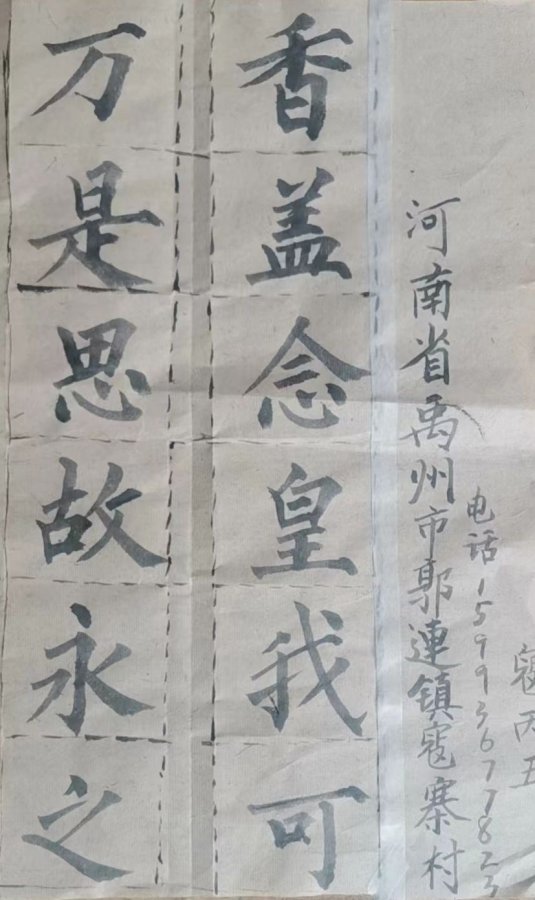 万是思故永之
香盖念皇我可
河南省禹州市郭連镇寇寨村
电话15993677823
寇丙五